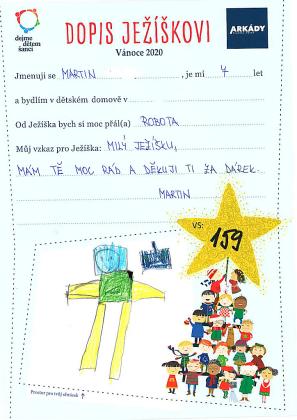 dejme
dětem
šanci
DOPIS JEŽÍŠKOVI
ARKÁDY
Vánoce 2020
Jmenuji se MARTIN , je mi 4 let
a bydlím v dětském domově v
Od Ježíška bych si moc přál(a) ROBOTA
Můj vzkaz pro Ježíška: MILÝ JEŽÍŠKU,
MÁM TĚ MOC RÁD A DĚKUJI TI ZA DÁREK.
MARTIN
VS:
159
Prostor pro tvůj obrázek ↑